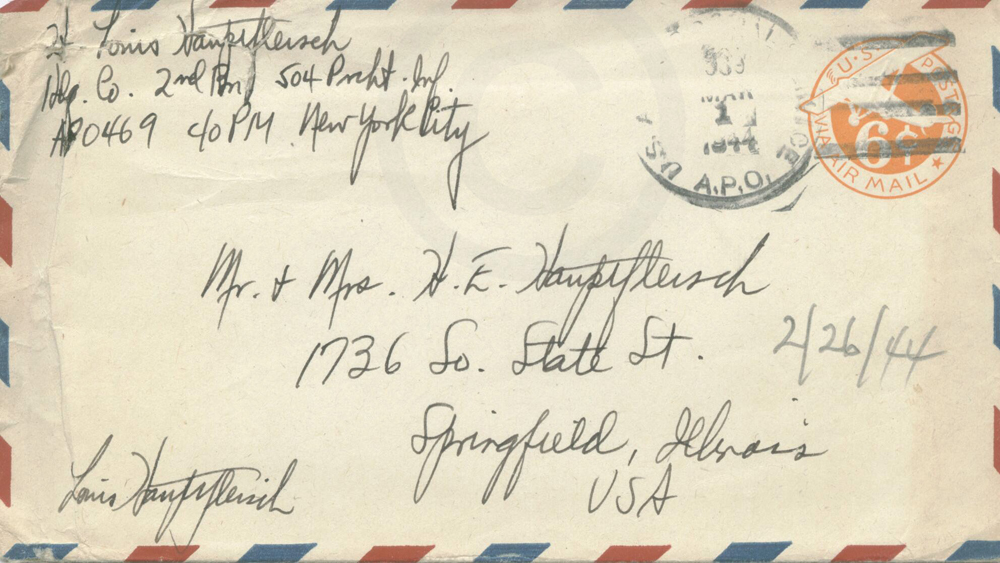 Lt Louis Hauptfleisch
Hdq. Co. 2nd Bn, 504 Prcht. Inf.
APO469 c/o PM. New York City
MAR
1
1944
U.S. A.P.O.
U.S. POSTAGE
6¢
VIA AIR MAIL
Mr. + Mrs. H. E. Hauptfleisch
1736 So. State St.
2/26/44
Springfield, Illinois
USA
Louis Hauptfleisch